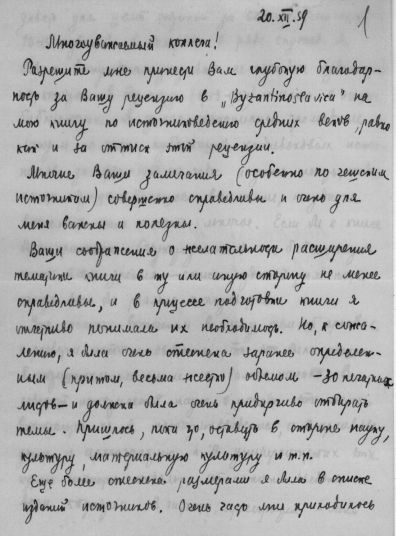 20.XII.59
1
Многоуважаемый коллега!
Разрешите мне принести Вам глубокую благодар-
ность за Вашу рецензию в „Byzantinoslavica" на
мою книгу по источниковедению средних веков, равно
как и за оттиск этой рецензии.
Многие Ваши замечания (особенно по чешским
источникам) совершенно справедливы и очень для
меня важны и полезны.
Ваши соображения о желательности расширения
тематики книги в ту или иную сторону не менее
справедливы, и в процессе подготовки книги я
отчетливо понимала их необходимость. Но, к сожа-
лению, я была очень стеснена заранее определен-
ным (притом, весьма жестко) объемом – 30 печатных
листов – и должна была очень придирчиво отбирать
темы. Пришлось, пока что, оставить в стороне науку,
культуру, материальную культуру и т.п.
Еще более стеснена размерами я была в списке
изданий источников. Очень часто мне приходилось